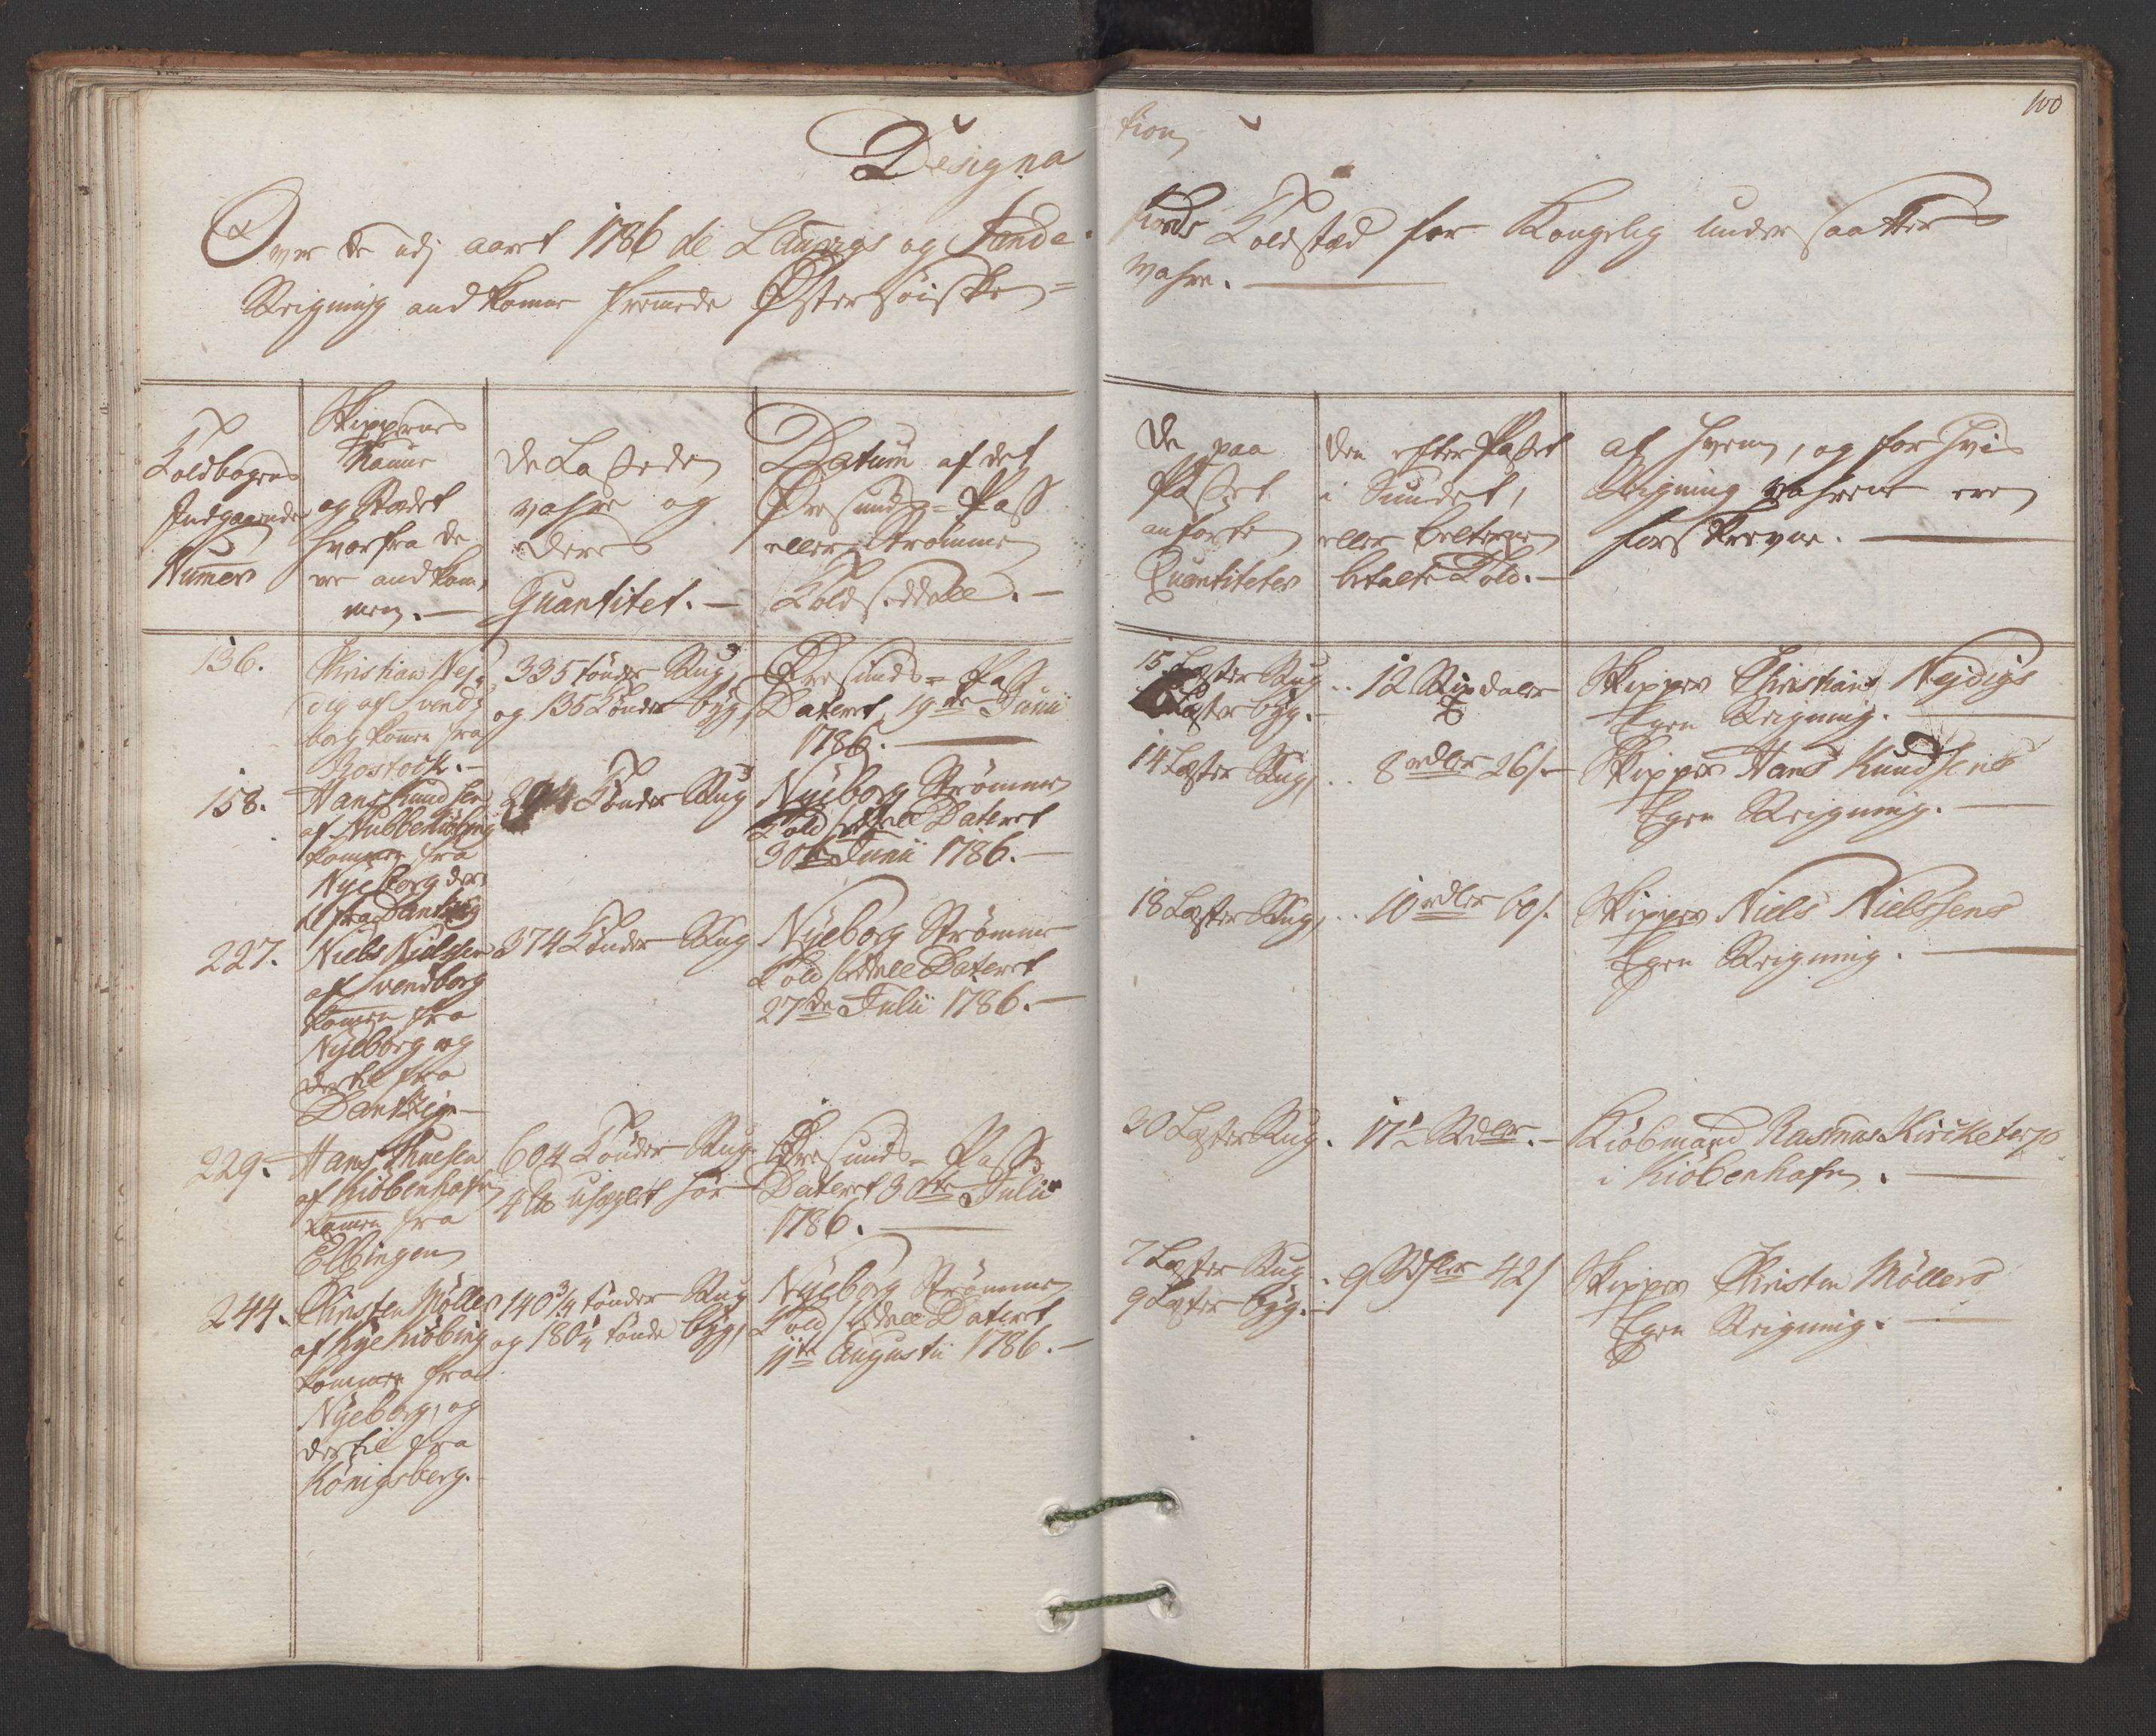 100
Designa
tion
Over de udj aaret 1786 de Laurvigs og Sande-
fiords Toldstæd for Kongelig undersaatters
Reigning andkomne fremmede Østersøiske
wahre.
Toldbogens
Indgaaende
Numer
Skippernes
Naune
og Stædet
hvorfra de
ere andkom-
men.
De Lossede
wahre og
deres
Quantitet.
Datum af det
Øresunds-Pass
eller Strømmens
Toldseddell.
De paa
Passet
anførte
Quantiteter
den efter Passet
i Sundet,
eller belterne
betalte Told.
af hvem, og for hvis
Reigning wahrene ere
forskrevne.
136.
Christian Nej-
dig af Svend-
borg kommen fra
Rostock.
335 tønder Rug
og 136 Tønder byg,
Øresunds-Pass
Dateret 19de Junii
1786.
15 Læster Rug
Læster byg.
12 Rixdaler
Skipper Christians Nejdigs
Egen Reigning.
158.
Hans Knudsen
af Stubbekiøbing
kommen fra
Nyeborg der-
til fra Dantzig
294 Tønder Rug
Nyeborg Strømmes
Told Seddell Dateret
30te Junii 1786.
14 Læster Rug,
8 rdler 26 s.
Skipper Hans Knudsens
Egen Reigning.
227.
Niels Nielsen
af Svendborg
kommen fra
Nyeborg og
dertil fra
Dantzig
374 Tønder Rug
Nyeborg Strømme
Told Seddell Dateret
27de Julii 1786.
18 Læster Rug,
10 rdler 60 s.
Skipper Niels Nielssens
Egen Reigning.
229.
Hans Thuesen
af Kiøbenhafn
kommen fra
Elbingen
604 Tønder Rug
4 uheglet hør
Øresunds-Pass
Dateret 30te Julii
1786.
30 Læster Rug.
17½ Rdler.
Kiøbmand Rasmus Kirketerp
i Kiøbenhafn.
244.
Christen Møller
af Nyekiøbing
kommen fra
Nyeborg, og
dertil fra
Königsberg.
140¾ tønder Rug
og 180¼ tønde byg,
Nyeborg Strømmes
Told Seddell Dateret
11te Augustii 1786.
7 Læster Rug
9 Læster byg.
9 Rdler 42 s
Skipper Christen Møllers
Egen Reigning.